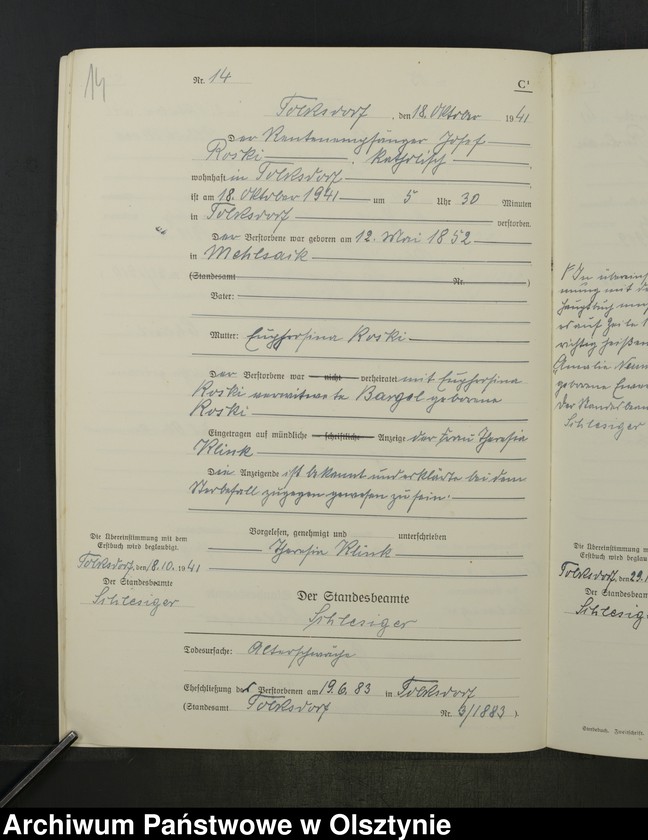 14
Nr. 14
C¹
Tolksdorf, den 18. Oktober 1941
Der Rentenempfänger Josef
Roski, katholisch
wohnhaft in Tolksdorf
ist am 18. Oktober 1941 um 5 Uhr 30 Minuten
in Tolksdorf verstorben.
Der Verstorbene war geboren am 12. Mai 1852
in Mehlsack
(Standesamt Nr. )
Vater:
Mutter: Euphrosina Roski
Der Verstorbene war nicht verheiratet mit Euphrosina
Roski verwitwete geborene
Roski
Eingetragen auf mündliche schriftliche Anzeige der Frau Theresia
Klink
Die Anzeigende ist bekannt und erklärte bei dem
Sterbefall zugegen gewesen zu sein.
Vorgelesen, genehmigt und unterschrieben
Theresia Klink
Die Übereinstimmung mit dem
Erstbuch wird beglaubigt.
Tolksdorf, den 18.10.1941
Der Standesbeamte
Schlesiger
Der Standesbeamte
Schlesiger
Todesursache: Altersschwäche
Eheschließung des Verstorbenen am 19.6.83 in Tolksdorf
(Standesamt Tolksdorf Nr. 3/1883)
In
mung mit
Hauptbuch
auf Zeile 1
richtig heißen
Amalie
geborene
Der
Schlesiger
Die Übereinstimmung
Erstbuch wird
Tolksdorf, den 29.
Der
Archiwum Państwowe w Olsztynie